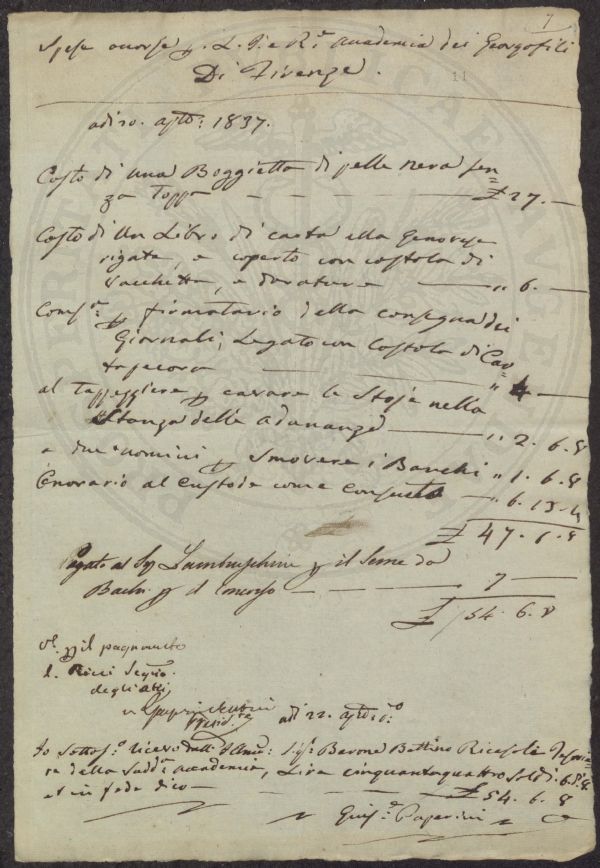 7
Spese occorse p. L. I. e R.e Accademia dei Georgofili
Di Firenze.
11
adi 20. agto: 1837.
Costo di una Boggietta di pelle nera sen=
za Toppa — — — £ 27. —
Costo di Un Libro di carta alla Genovese
rigate, e coperto con costola di
vacchetta, e dorature — " 6. —
Comp.a p firmatario della consegna dei
Giornali, Legato con Costola di Car=
tapecora — — " 4 —
al Tappezziere p cavare le Stoje nella
Stanza delle adunanze — " 2. 6. 8
a due uomini p smovere i Banchi " 1. 6. 8
Onorario al Custode come consueto — " 6. 13. 4
£ 47. 6. 8
Pagato al Sig Lambruschini p il Seme da
Bachi p il Concorso — — — 7 —
£ 54. 6. 8
V.o p il pagamento
L. Ricci Segrio.
degli Atti
Presid.te
adi 22. agto
Io sottos.o ricevo dall' Sig.r Barone Bettino Ricasoli Tesorie=
re della Sudd.a accademia, Lire cinquantaquattro Soldi 6. 8.
et in fede dico — — — £ 54. 6. 8
Gius.e Paperini